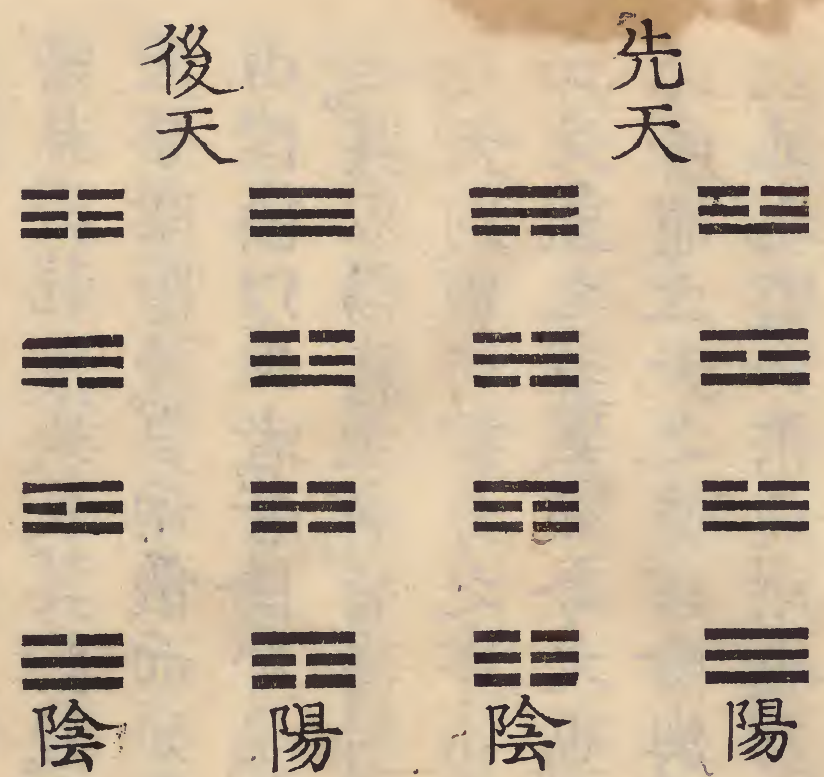 先天
後天
陽
陰
陽
陰